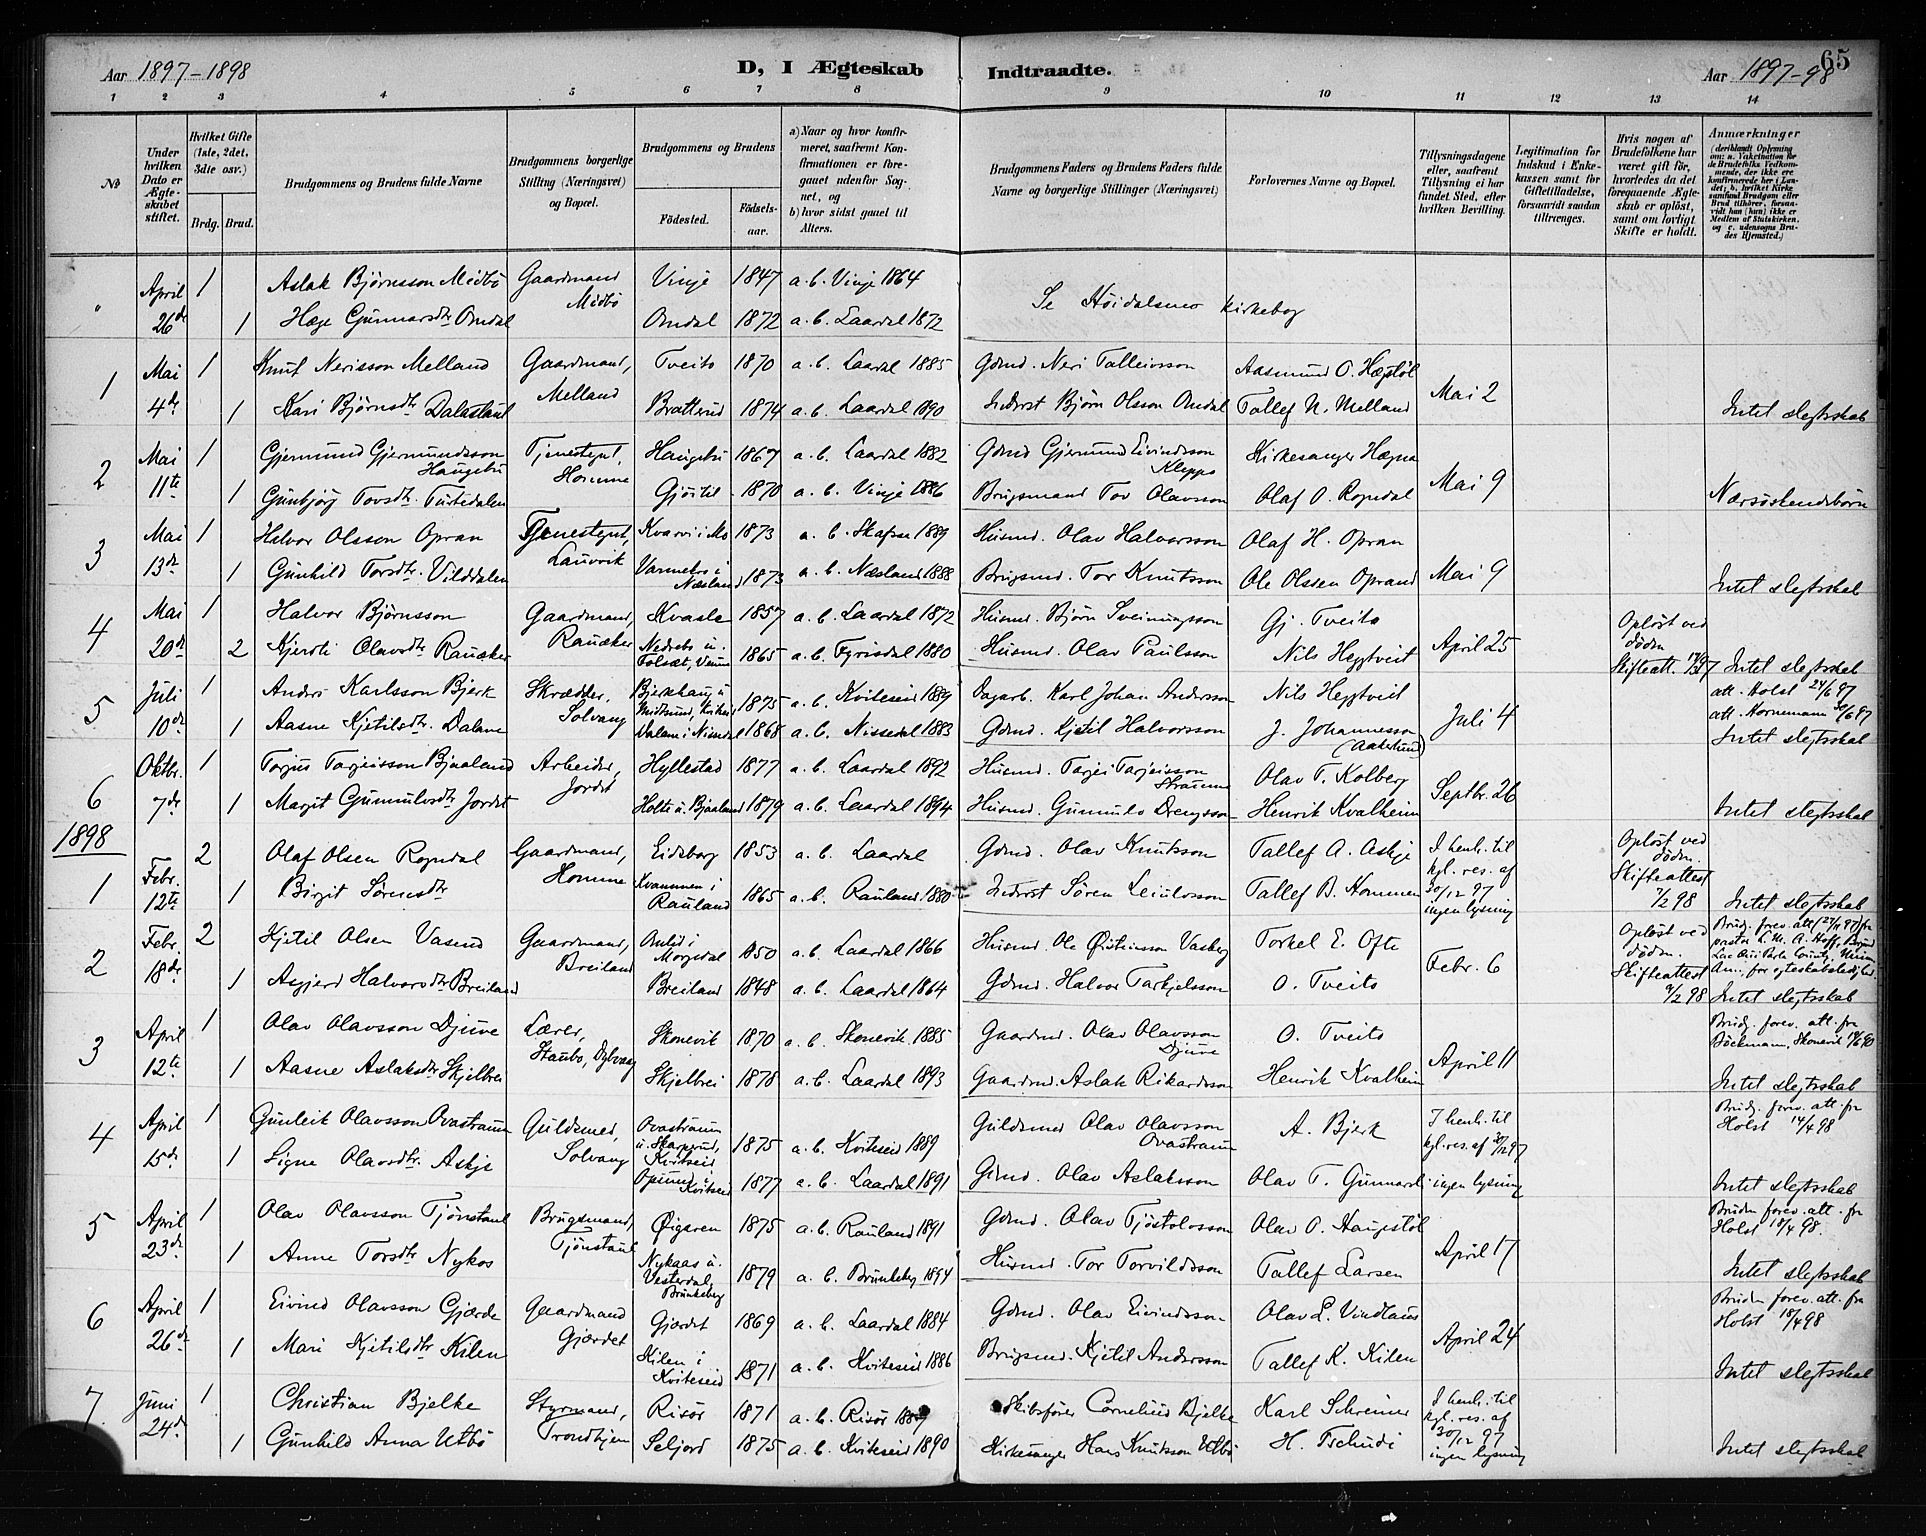 Aar 1897-1898
D, I Ægteskab Indtraadte.
Aar 1897-98
65
1 2 3 4 5 6 7 8 9 10 11 12 13 14
№
Under hvilken Dato er Ægteskabet stiftet.
Hvilket Gifte (1ste, 2det, 3die osv.)
Brdg. Brud.
Brudgommens og Brudens fulde Navne
Brudgommens borgerlige Stilling (Næringsvei) og Bopæl.
Brudgommens og Brudens
Fødested.
Fødselsaar.
a) Naar og hvor konfirmeret, saafremt Konfirmationen er foregaaet udenfor Sognet, og
b) hvor sidst gaaet til Alters.
Brudgommens Faders og Brudens Faders fulde Navne og borgerlige Stillinger (Næringsvei)
Forlovernes Navne og Bopæl.
Tillysningsdagene eller, saafremt Tillysning ei har fundet Sted, efter hvilken Bevilling.
Legitimation for Indskud i Enkekassen samt for Giftetilladelse, forsaavidt saadan tiltrænges.
Hvis nogen af Brudefolkene har været gift før, hvorledes da det foregaaende Ægteskab er opløst, samt om lovligt Skifte er holdt.
Anmærkninger
" April 26de 1 Aslak Bjørnsson Midbø Gaardmand Midbø Vinje 1847 a. b. Vinje 1864
1 Hæge Gunnarsdtr. Omdal Omdal 1872 a. b. Laardal 1872
Se Høidalsmo kirkebog
1 Mai 4de 1 Knut Nerisson Melland Gaardmand, Melland Tveito 1870 a. b. Laardal 1885 Gdmd. Neri Talleivsson Aasmund O. Hægstøl Mai 2
1 Kari Bjørnsdtr. Dalastaul Bratterud 1874 a. b. Laardal 1890 Inderst Bjørn Olsson Omdal Tallef N. Melland Intet slegtsskab
2 Mai 11te 1 Gjermund Gjermundsson Haugebu Tjenestegut, Homme Haugebu 1867 a. b. Laardal 1882 Gdmd Gjermund Eivindsson Kleppo Kirkesanger Hægna Mai 9
1 Gunbjør Tovsdtr. Tuftedalen 1870 a. b. Vinje 1886 Brugsmand Tov Olavsson Olaf O. Rogndal Nærsøskendebørn
3 Mai 13de 1 Halvor Olsson Opran Tjenestegut, Lauvvik Kvarvi i Mo 1873 a. b. Skafsaa 1889 Husmd. Olav Halvorsson Olaf H. Opran Mai 9
1 Gunhild Torsdtr. Vilddalen Næsland 1873 a. b. Næsland 1888 Brugsmd. Tor Knutsson Ole Olssen Oprand Intet slegtsskab
4 Mai 20de 1 Halvor Bjørnsson Gaardmand, Rauæker Kvaale 1857 a. b. Laardal 1872 Husmd. Bjørn Sveinungsson Gj. Tveito April 25 Opløst ved døden
2 Kjersti Olavsdtr. Rauæker Nedrebø u. Folsæt, 1865 a. b. Fyrisdal 1880 Husmd. Olav Paulsson Nils Hegtveit Skifteatt. Intet slegtsskab
5 Juli 10de 1 Andrs Karlsson Bjerk Skrædder, Solvang 1875 a. b. Kviteseid 1889 Dagarb. Karl Johan Andersson Nils Hegtveit Juli 4 att. Holst 24/6 97
1 Aasne Kjetilsdtr. Dalane Dalane i Nissedal 1868 a. b. Nissedal 1883 Gdmd. Kjetil Halvorsson J. Johannesson (Aakerlund) att. Hornemann 30/6 97
Intet slegtsskab
6 Oktbr. 7de 1 Targus Targeisson Bjaaland Arbeider, Jordet Hyllestad 1877 a. b. Laardal 1892 Husmd. Targei Targeisson Straume Olav T. Kolberg Septbr. 26
1 Margit Gunnulvsdtr. Jordet Holte u. Bjaaland 1879 a. b. Laardal 1894 Husmd. Gunnulv Drengsson Henrik Kvalheim Intet slegtsskab
1898
1 Febr. 12te 2 Olaf Olsen Rogndal Gaardmand, Homme Eidsborg 1853 a. b. Laardal Gdmd. Olav Knutsson Tallef A. Askje I henh. til kgl. res. af 30/12 97 ingen lysning Opløst ved døden. Skifteattest 7/2 98
1 Birgit Sørensdtr Kvammen i Rauland 1865 a. b. Rauland 1880 Inderst Søren Leiulvsson Tallef B. Hommen Intet slegtsskab
2 Febr. 18de 2 Kjetil Olsen Vasend Gaardmand, Breiland Morgedal 1850 a. b. Laardal 1866 Husmd. Ole Øisteinsson Vasberg Torkel E. Ofte Febr. 6 Opløst ved døden. Skifteattest 9/2 98
1 Asgjerd Halvorsdtr. Breiland Breiland 1848 a. b. Laardal 1864 Gdmd. Halvor Tarkjelsson O. Tveito Intet slegtsskab
3 April 12te 1 Olav Olavsson Djuve Lærer, Staubo, Dybvaag Skonevik 1870 a. b. Skonevik 1885 Gaardmd. Olav Olavsson Djuve O. Tveito April 11 Brudg. forev. att. fra Böckmann, Skonevik
1 Aasne Aslaksdtr. Skjelbrei Skjelbrei 1878 a. b. Laardal 1893 Gaardmd. Aslak Rikardsson Henrik Kvalheim Intet slegtsskab
4 April 15de 1 Gunleik Olavsson Ovastraum Guldsmed, Solvang Ovastraum u. Skarprud, Kviteseid 1875 a. b. Kviteseid 1889 Guldsmed Olav Olavsson Ovastraum A. Bjerk I henh. til kgl. res. af 30/12 97 ingen lysning Brudg. forev. att. fra Holst 14/4 98
1 Signe Olavsdtr. Askje Kviteseid 1877 a. b. Laardal 1891 Gdmd. Olav Aslaksson Olav T. Gunnarsli Intet slegtsskab
5 April 23de 1 Olav Olavsson Tjønstaul Brugsmand, Tjønstaul Øigaren 1875 a. b. Rauland 1891 Gdmd. Olav Tjøstolvsson Olav O. Haugestøl April 17 Bruden forev. att. fra Holst 18/4 98.
1 Anne Torsdtr. Nykos Nykaas u. Vesterdal, Brunkeberg 1879 a. b. Brunkeberg 1894 Husmd. Tor Torvildsson Tallef Larsen Intet slegtsskab
6 April 26de 1 Eivind Olavsson Gjærde Gaardmand Gjærdet Gjærdet 1869 a. b. Laardal 1884 Gdmd. Olav Eivindsson Olav L. Vindlaus April 24 Bruden forev. att. fra Holst 18/4 98
1 Mari Kjetilsdtr Kilen Kilen i Kviteseid 1871 a. b. Kviteseid 1886 Brugsmd. Kjetil Andersson Tallef K. Kilen Intet slegtsskab
7 Juni 24de 1 Christian Bjelke Styrmand, Trondhjem Risør 1871 a. b. Risør Skibsfører Cornelius Bjelke Karl Schreiner I henh. til kgl. res. af 30/12 97 ingen lysning
1 Gunhild Anna Utbø Seljord 1875 a. b. Kviteseid 1890 Kirkesanger Hans Knutsson Utbø H. Tschudi Intet slegtsskab